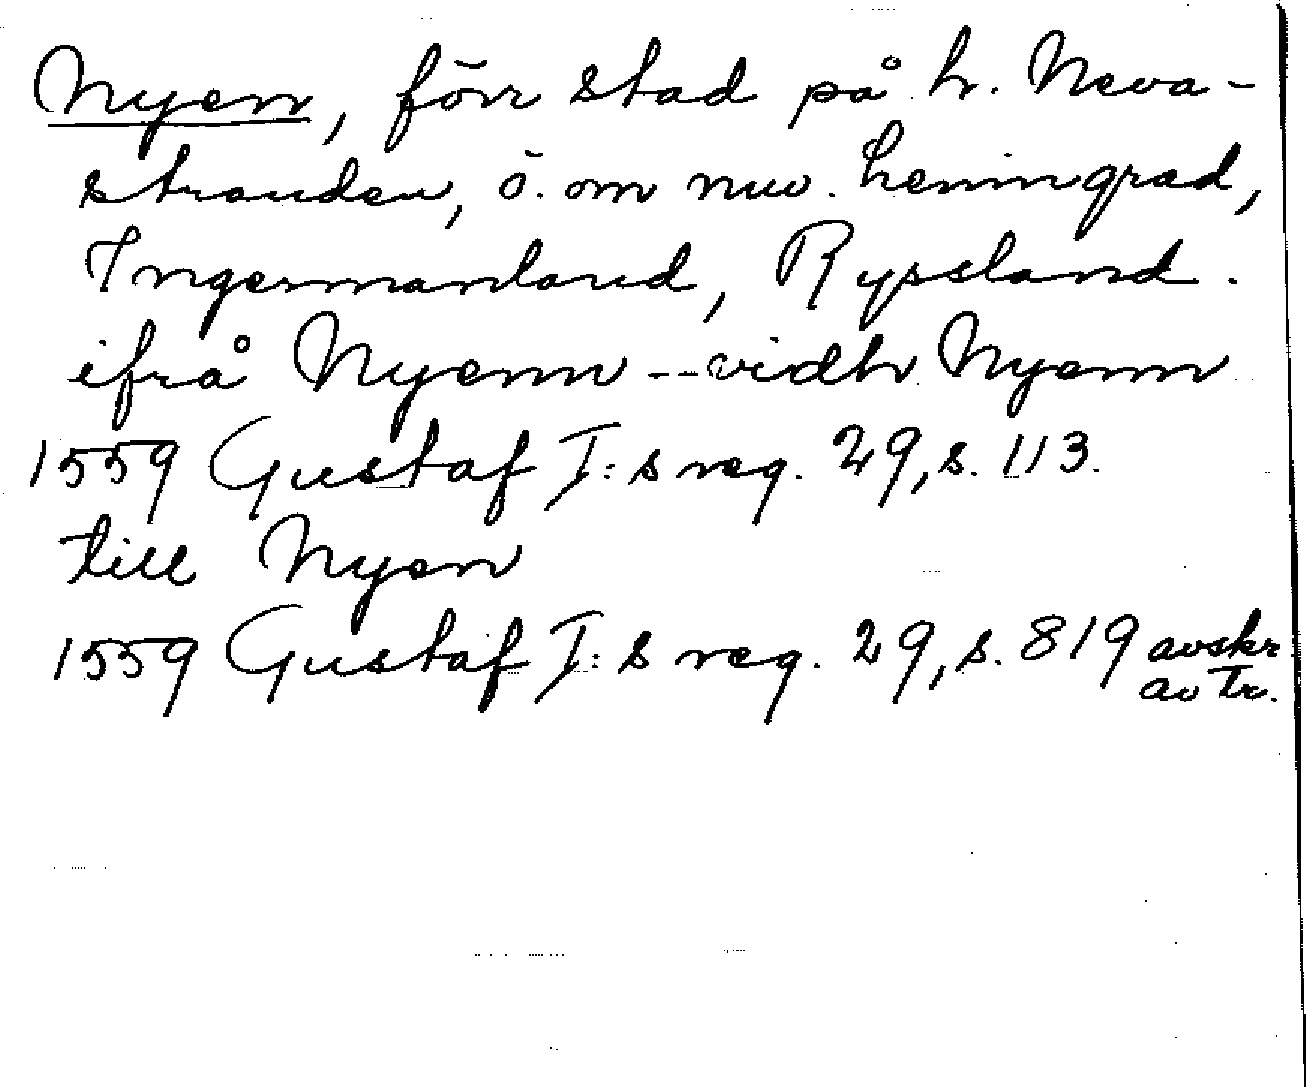 Nyen, förr stad på h. Neva-
stranden, ö. om nuv. Leningrad,
Ingermanland, Ryssland.
ifrå Nyenn -- vidh Nyenn
1559 Gustaf I:s reg. 29, s. 113.
till Nyen
1559 Gustaf I:s reg. 29, s. 819 avskr
av Tr.